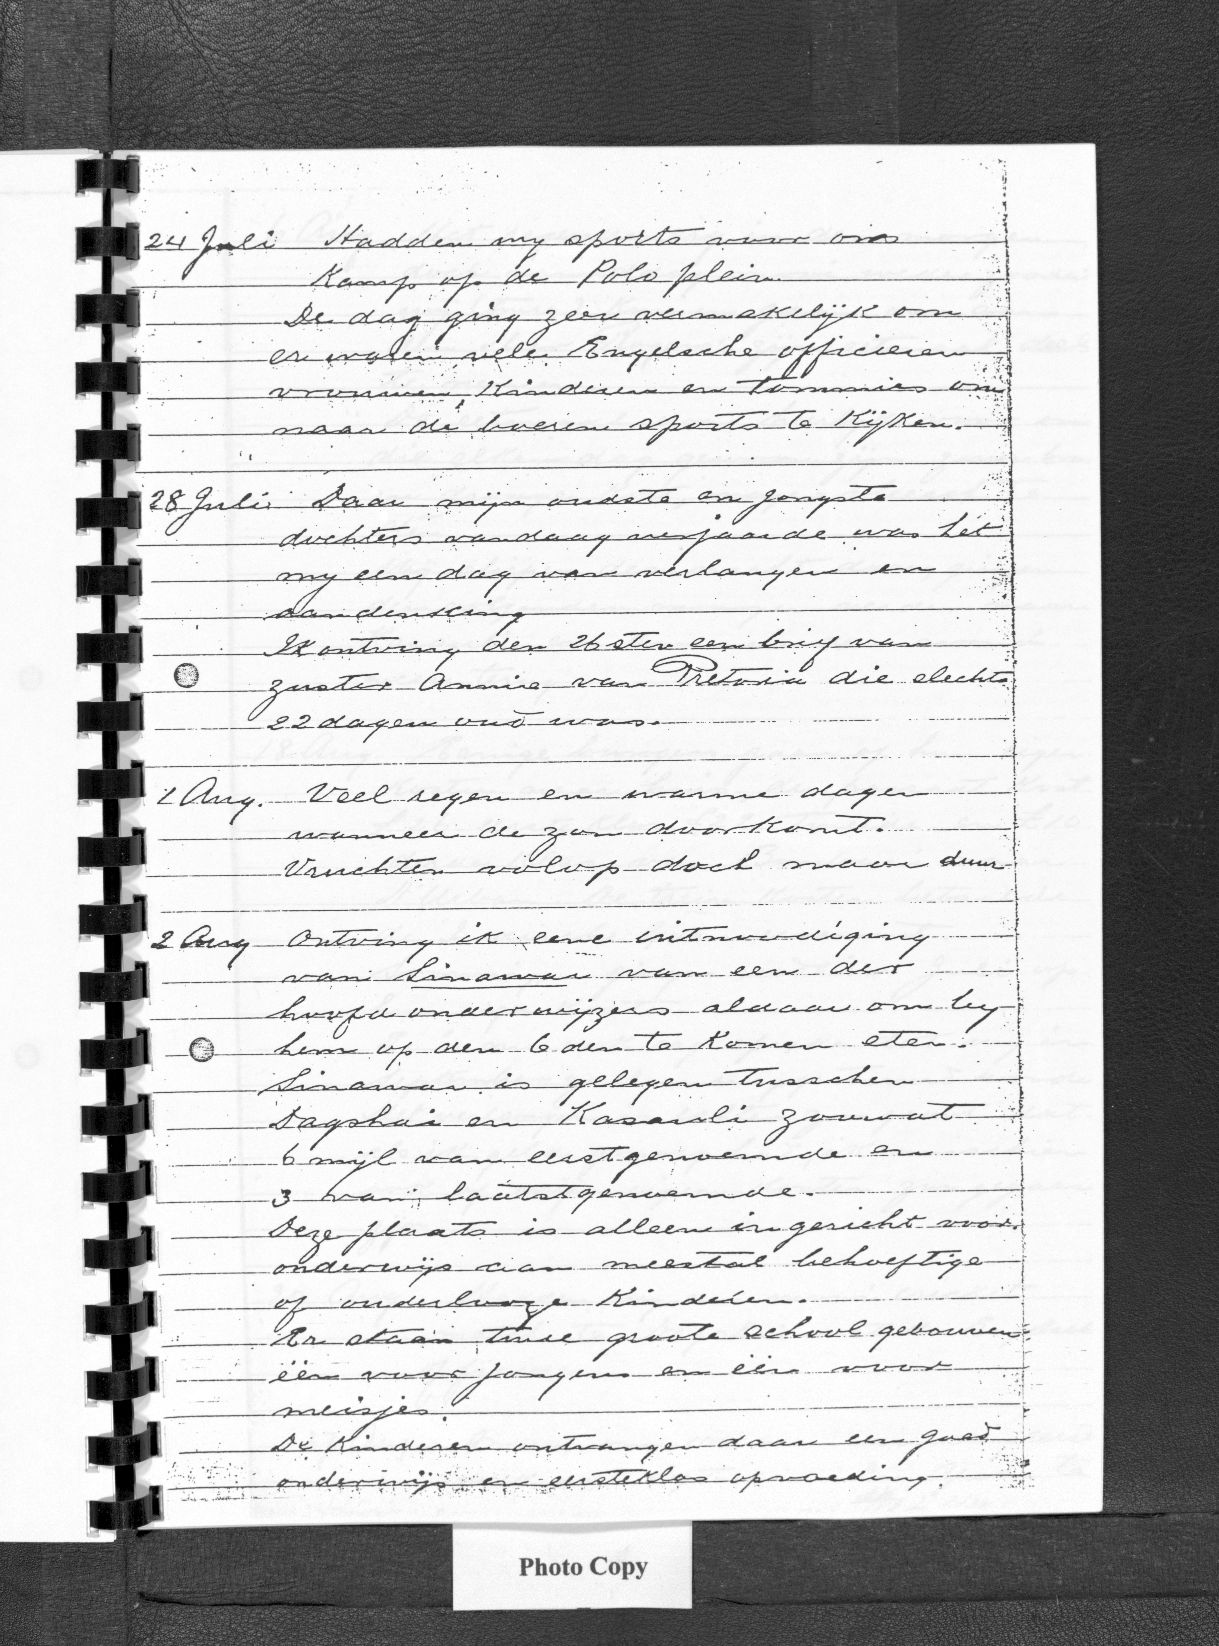 24 Juli Hadden my sports voor ons
Kamp op de Polo plein.
De dag ging zeer vermakelijk om
er waren vele Engelsche officieren
vrouwen, Kinderen en tommies om
naar de boeren sports te Kijken.
28 Juli Daar mijn oudste en jongste
dochters vandaag verjaarde was het
my een dag van verlangen en
aandenking
Ik ontving den 26sten een brief van
zuster Annie van Pretoria die slechts
22 dagen oud was.
1 Aug. Veel regen en warme dagen
wanneer de zon doorkomt.
Vruchten volop doch maar duur
2 Aug Ontving ik eene uitnoodiging
van Sinawar van een der
hoofd onderwijzers aldaar om by
hem op den 6den te Komen eten.
Sinawar is gelegen tusschen
Dagshai en Kasauli zoowat
6 mijl van eerstgenoemde en
3 van laatstgenoemde.
Deze plaats is alleen ingericht voor
onderwijs aan meestal behoeftige
of ouderlooze Kinderen.
Er staan twee groote school gebouwen
één voor jongens en één voor
meisjes.
De Kinderen ontvangen daar een goed
onderwijs en eersteklas opvoeding.
Photo Copy